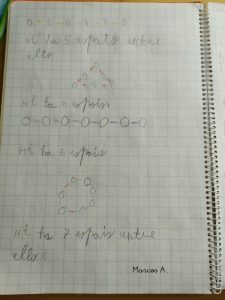 Hi ha 5 espais entre
ells
Hi ha 6 espais
Hi ha 6 espais
Hi ha 7 espais entre
ells
Marcos A.